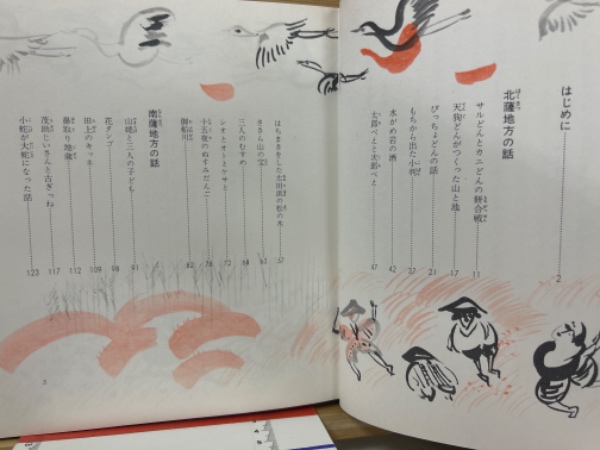 はじめに 2
北薩地方の話
サルどんとカニどんの餅合戦 11
天狗どんがつくった山と池 17
ぴっちょどんの話 21
もちから出た小判 27
水がめ岩の酒 42
太郎べえと次郎べえ 47
はちまきをした太田浜の松の木 57
ささら山の宝 61
三人のむすめ 64
シオとオトとケサと 72
十五夜のぬすみだんご 78
御船川 82
南薩地方の話
山姥と三人の子ども 91
花ダンゴ 98
田上のキッネ 109
鼻取り地蔵 112
茂助じいさんと古ぎつね 117
小蛇が大蛇になった話 123